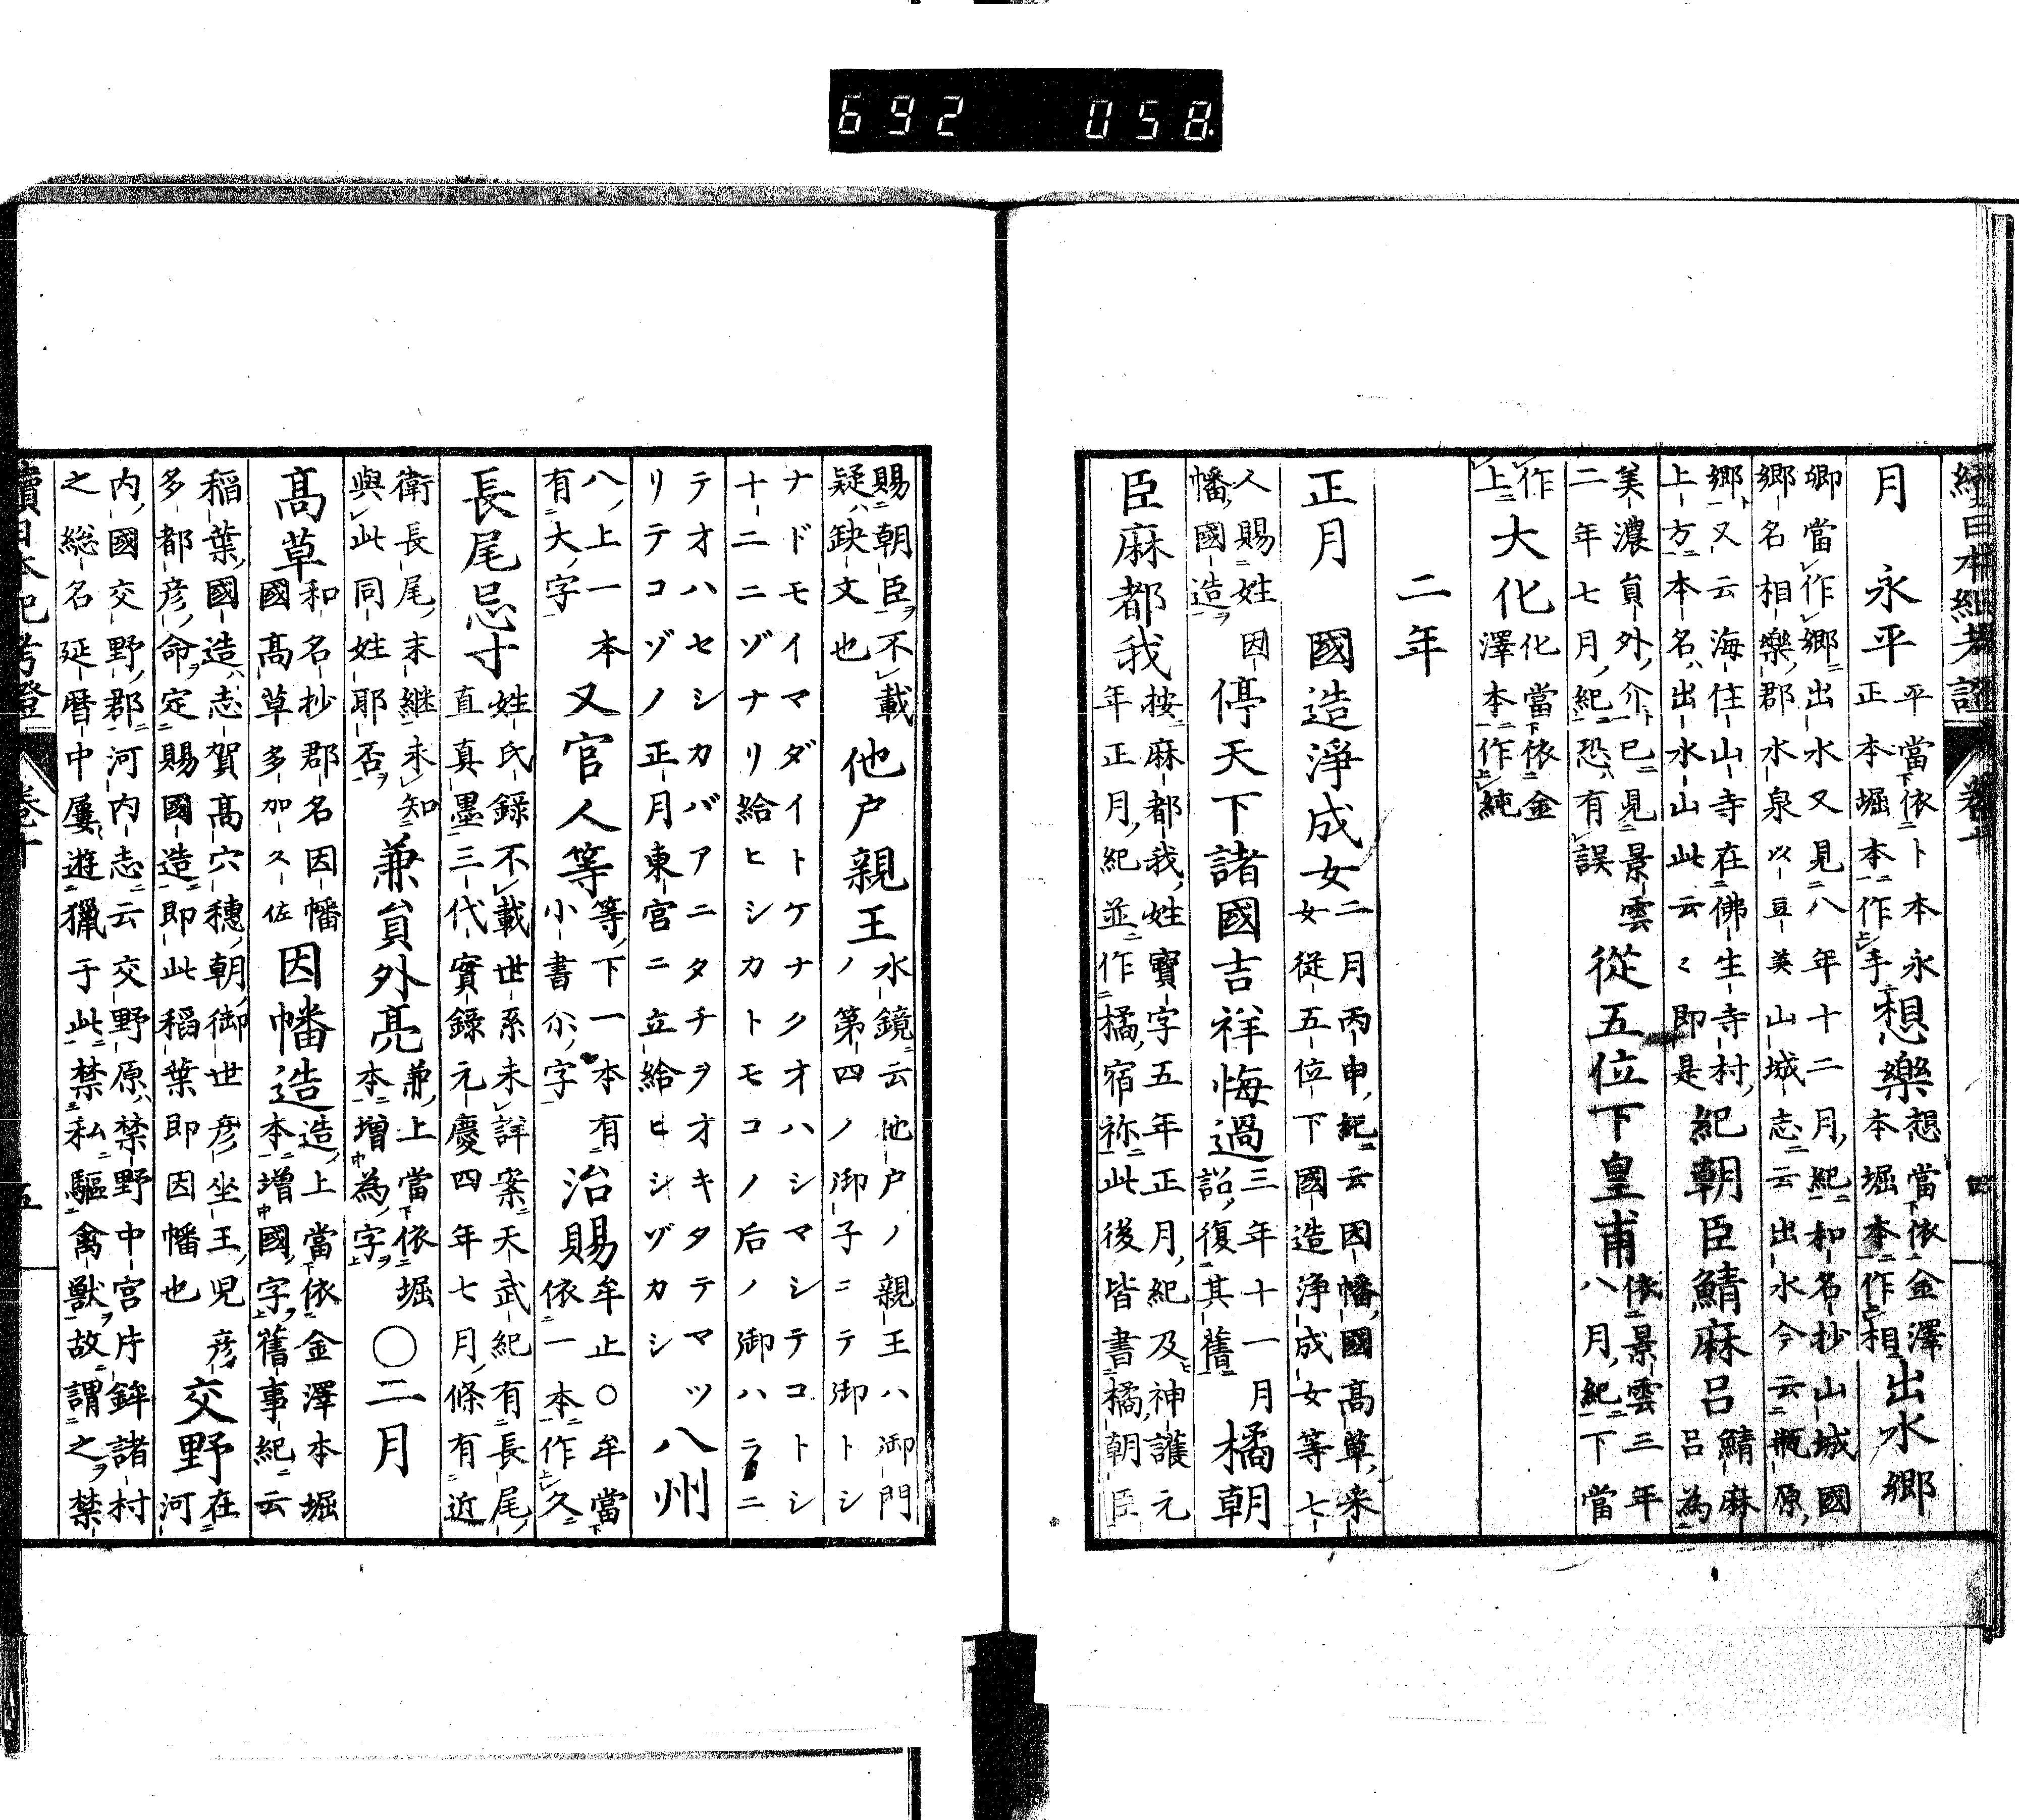 692 058
續日本紀考證 卷十 四
月 永平 平當依卜本永
正本堀本作手 想樂 想當依金澤
本堀本作相 出水鄉
鄉當作鄉出水又見八年十二月紀和名抄山城國
鄉名相樂郡水泉以豆美山城志云出水今云瓶原
鄉又云海住山寺在佛生寺村
上方本名出水山此云々即是 紀朝臣鯖麻呂 鯖麻
呂為
美濃員外介已見景雲
二年七月紀恐有誤 從五位下皇甫 依景雲三年
八月紀下當
作
上 大化 化當依金
澤本作純
二年
正月 國造淨成女 二月丙申紀云因幡國高草采
女從五位下國造淨成女等七
人賜姓因
幡國造 停天下諸國吉祥悔過 三年十一月
詔復其舊 橘朝
臣麻都我 按麻都我姓寶字五年正月紀及神護元
年正月紀並作橘宿祢此後皆書橘朝臣
賜朝臣不載
疑缺文也 他户親王 水鏡云他户ノ親王ハ御門
ノ第四ノ御子ニテ御トシ
ナドモイマダイトケナクオハシマシテコトシ
十二ニゾナリ給ヒシカトモコノ后ノ御ハラニ
テオハセシカバアニタチヲオキタテマツ
リテコゾノ正月東宮ニ立給ヒシヅカシ 八州
八上一本
有大字 又官人等 等下一本有
小書尒字 治賜 牟止○牟當
依一本作久
長尾忌寸 姓氏錄不載世系未詳案天武紀有長尾
直真墨三代實錄元慶四年七月條有近
衛長尾末継未知
與此同姓耶否 兼員外亮 兼上當依堀
本增為字 ○二月
高草 和名抄郡名因幡
國高草多加久佐 因幡造 造上當依金澤本堀
本增國字舊事紀云
稲葉國造志賀高穴穗朝御世彦坐王兒彦
多都彦命定賜國造即此稻葉即因幡也 交野 在
河
内國交野郡河内志云交野原禁野中宮片鉾諸村
之総名延暦中屢遊獵于此禁私驅禽獸故謂之禁
續日本紀考證 卷十 五